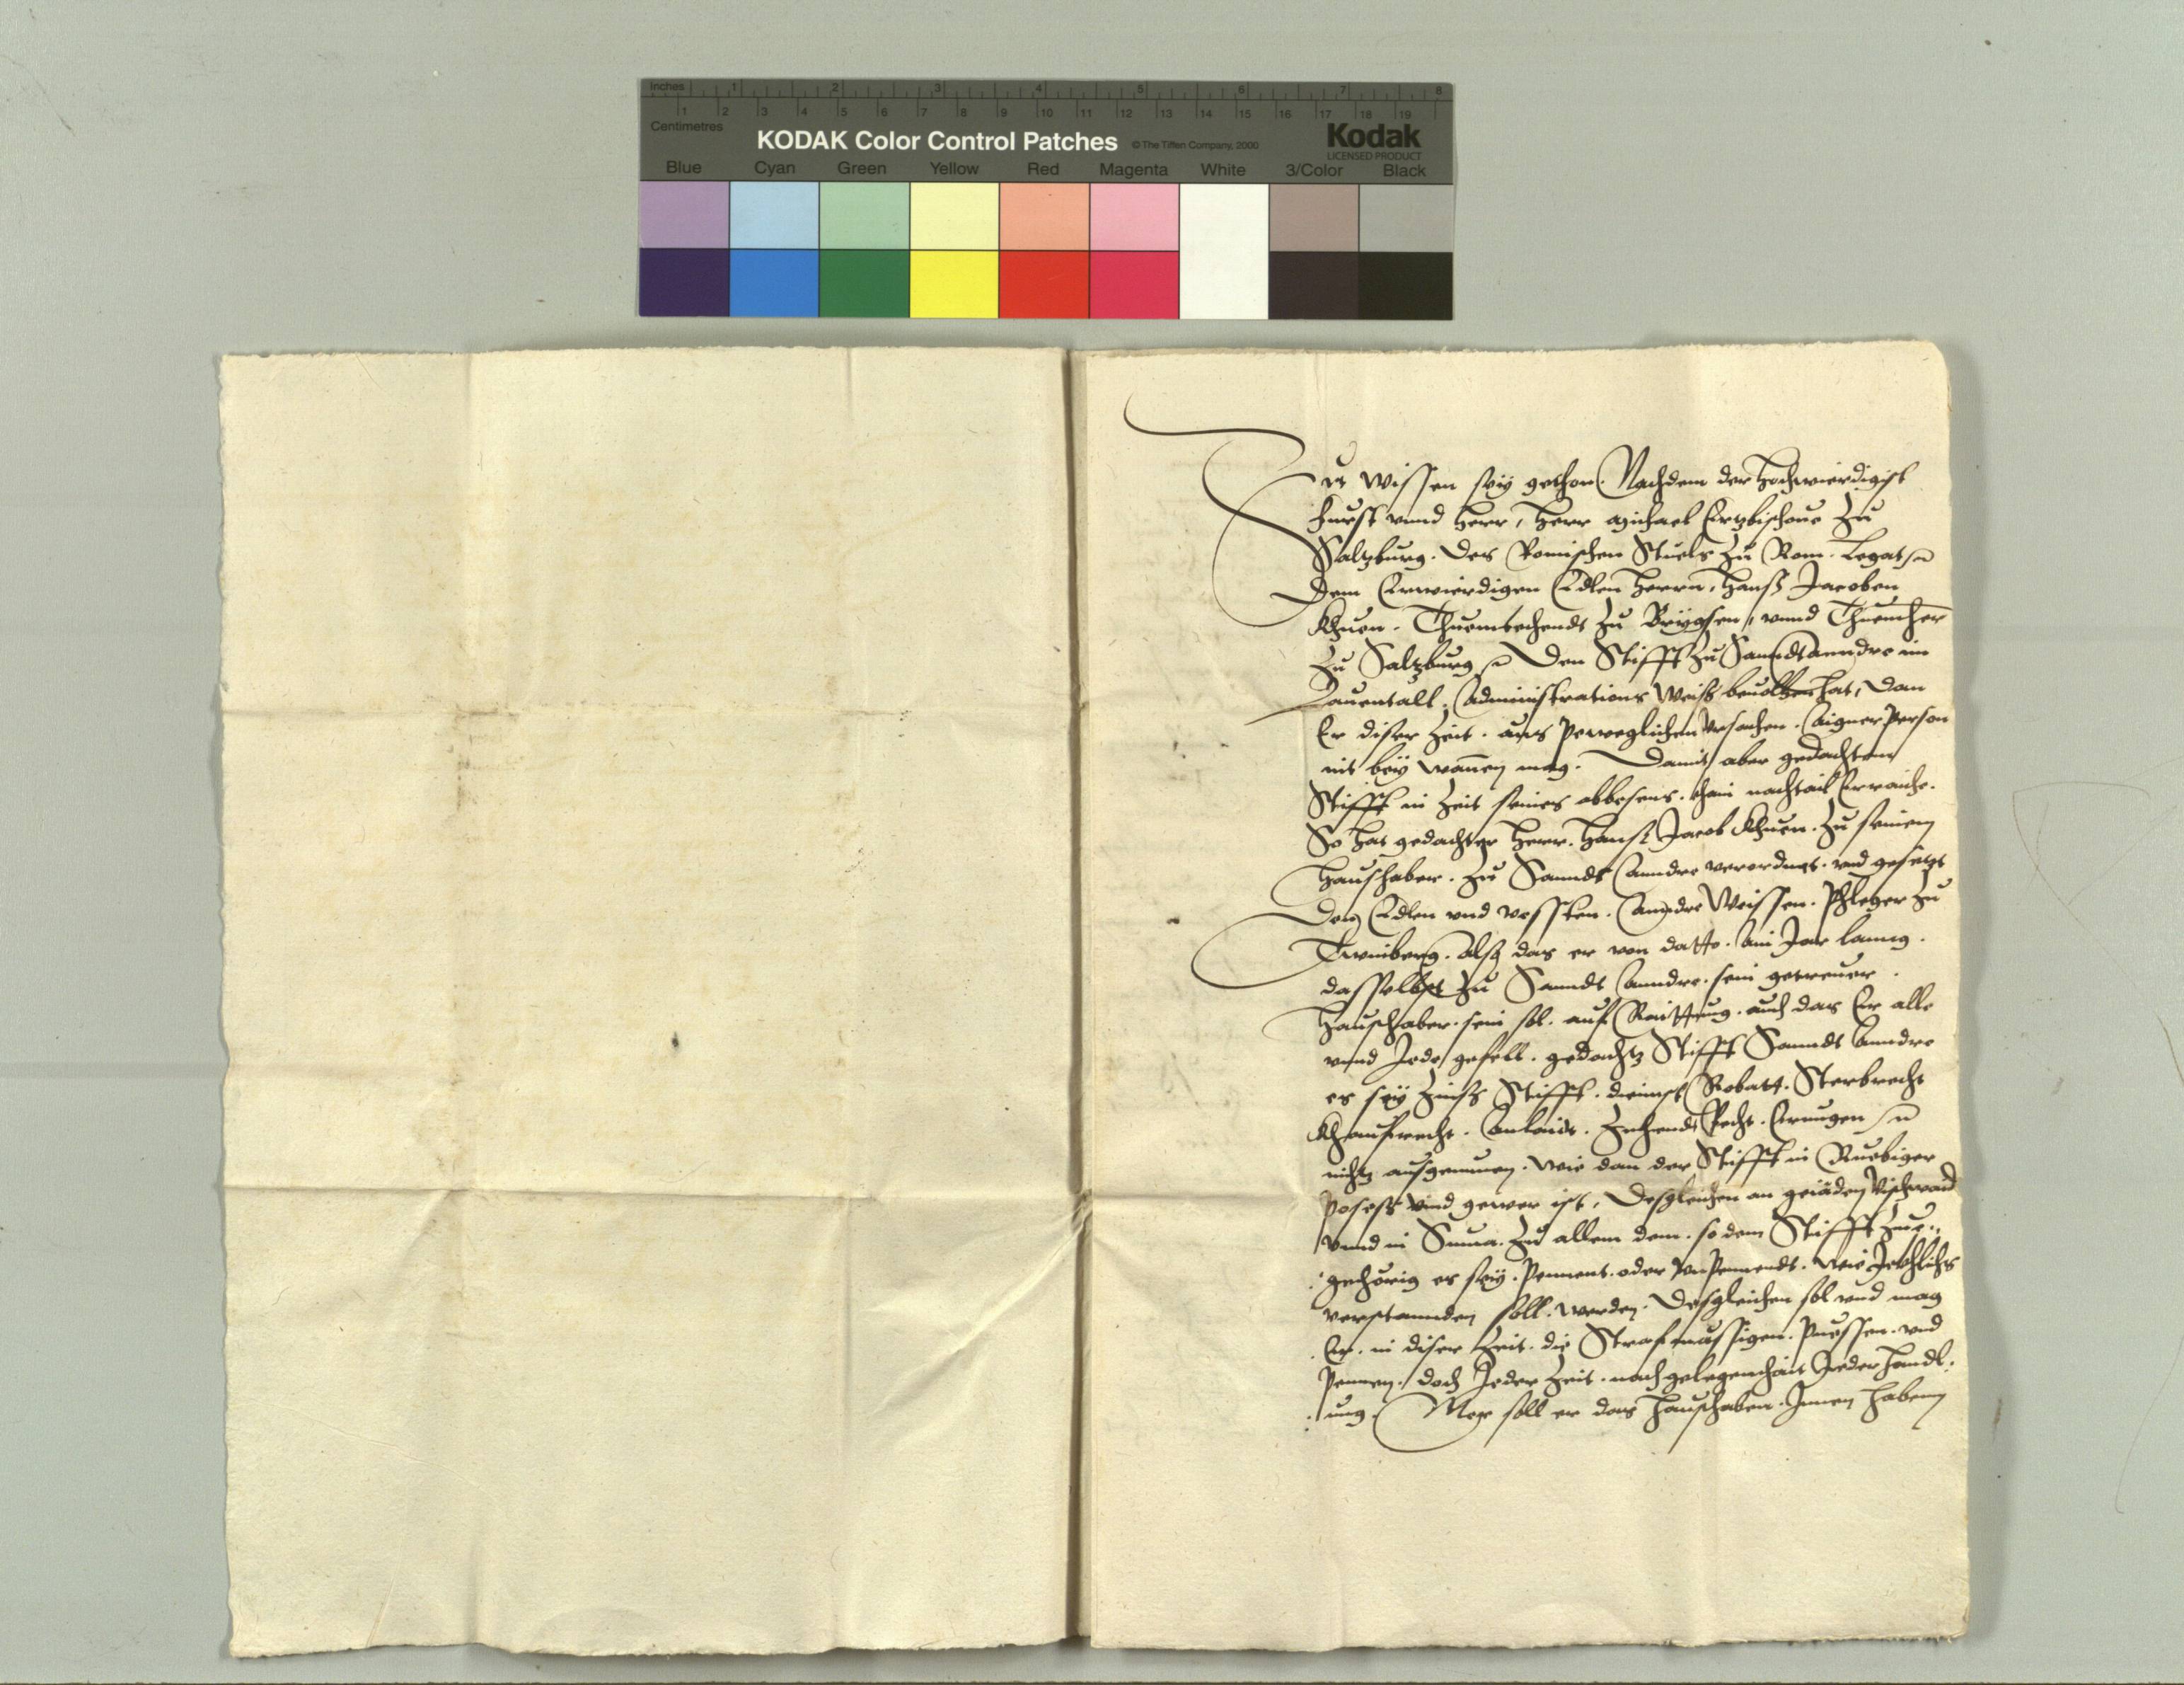 Inches 1 2 3 4 5 6 7 8
1 2 3 4 5 6 7 8 9 10 11 12 13 14 15 16 17 18 19
Centimetres
KODAK Color Control Patches © The Tiffen Company, 2000 Kodak
LICENSED PRODUCT
Blue Cyan Green Yellow Red Magenta White 3/Color Black
Zu Wissen seÿ gethon. Nachdem der Hochwierdigist
Furst vnnd Herr, Herr Michael Ertzbischoue Zu
Saltzburg. des Romischen Stuels Zu Rom. Legat
Dem Erwierdigen Edlen Herrn, Hannß Jacoben
Khuen. Thuembechendt Zu Brÿxsen, vnnd Thuemher
Zu Saltzburg Den Stifft Zu Sanndt anndre im
Lauentall. Administrations Weiß beuolhen hat, dan
Er diser Zeit. aus beweglichen vrsachen. Aigner Person
nit beÿ wanen mag. Damit aber gedachtem
Stifft in Zeit seines abbesens. khain nachtail Erraiche.
So hat gedachter Herr. Hannß Jacob Khuen. Zu seinem
Haushaber. Zu Sanndt Anndre verordnet. vnd gesetzt
Den Edlen vnd vessten. Anndre Weissen. Phleger Zu
Twimberg. Also das er von datto. Ain Jar lanng.
dasselbst Zu Sanndt Anndre. sein getreuer.
Haushaber. sein sol. auf Raittung. auch das Er alle
vnnd Jede gefell. gedachtz Stifft Sanndt Anndre
es seÿ Zinß Stifft. dienst Robatt. Sterbrecht
Khaufrecht. Anlait. Zehendt Recht.
nichtz ausgenumen. Wie dan der Stifft in Ruebiger
Posess vnd gewer ist, Desgleichen an
vnnd in Suma. Zu allem dem. so dem Stifft Zue:
gehörig es seÿ. Pennent. oder vnPennendt. Wie
verstannden soll. werden. Desgleichen sol vnd mag
Er. in diser Zeit. die Strafmässigen. Puessen. vnd
Pennen. doch Jeder Zeit. nach gelegenhait Jeder Handl:
ung. Mer soll er das Haushaben. Innen haben